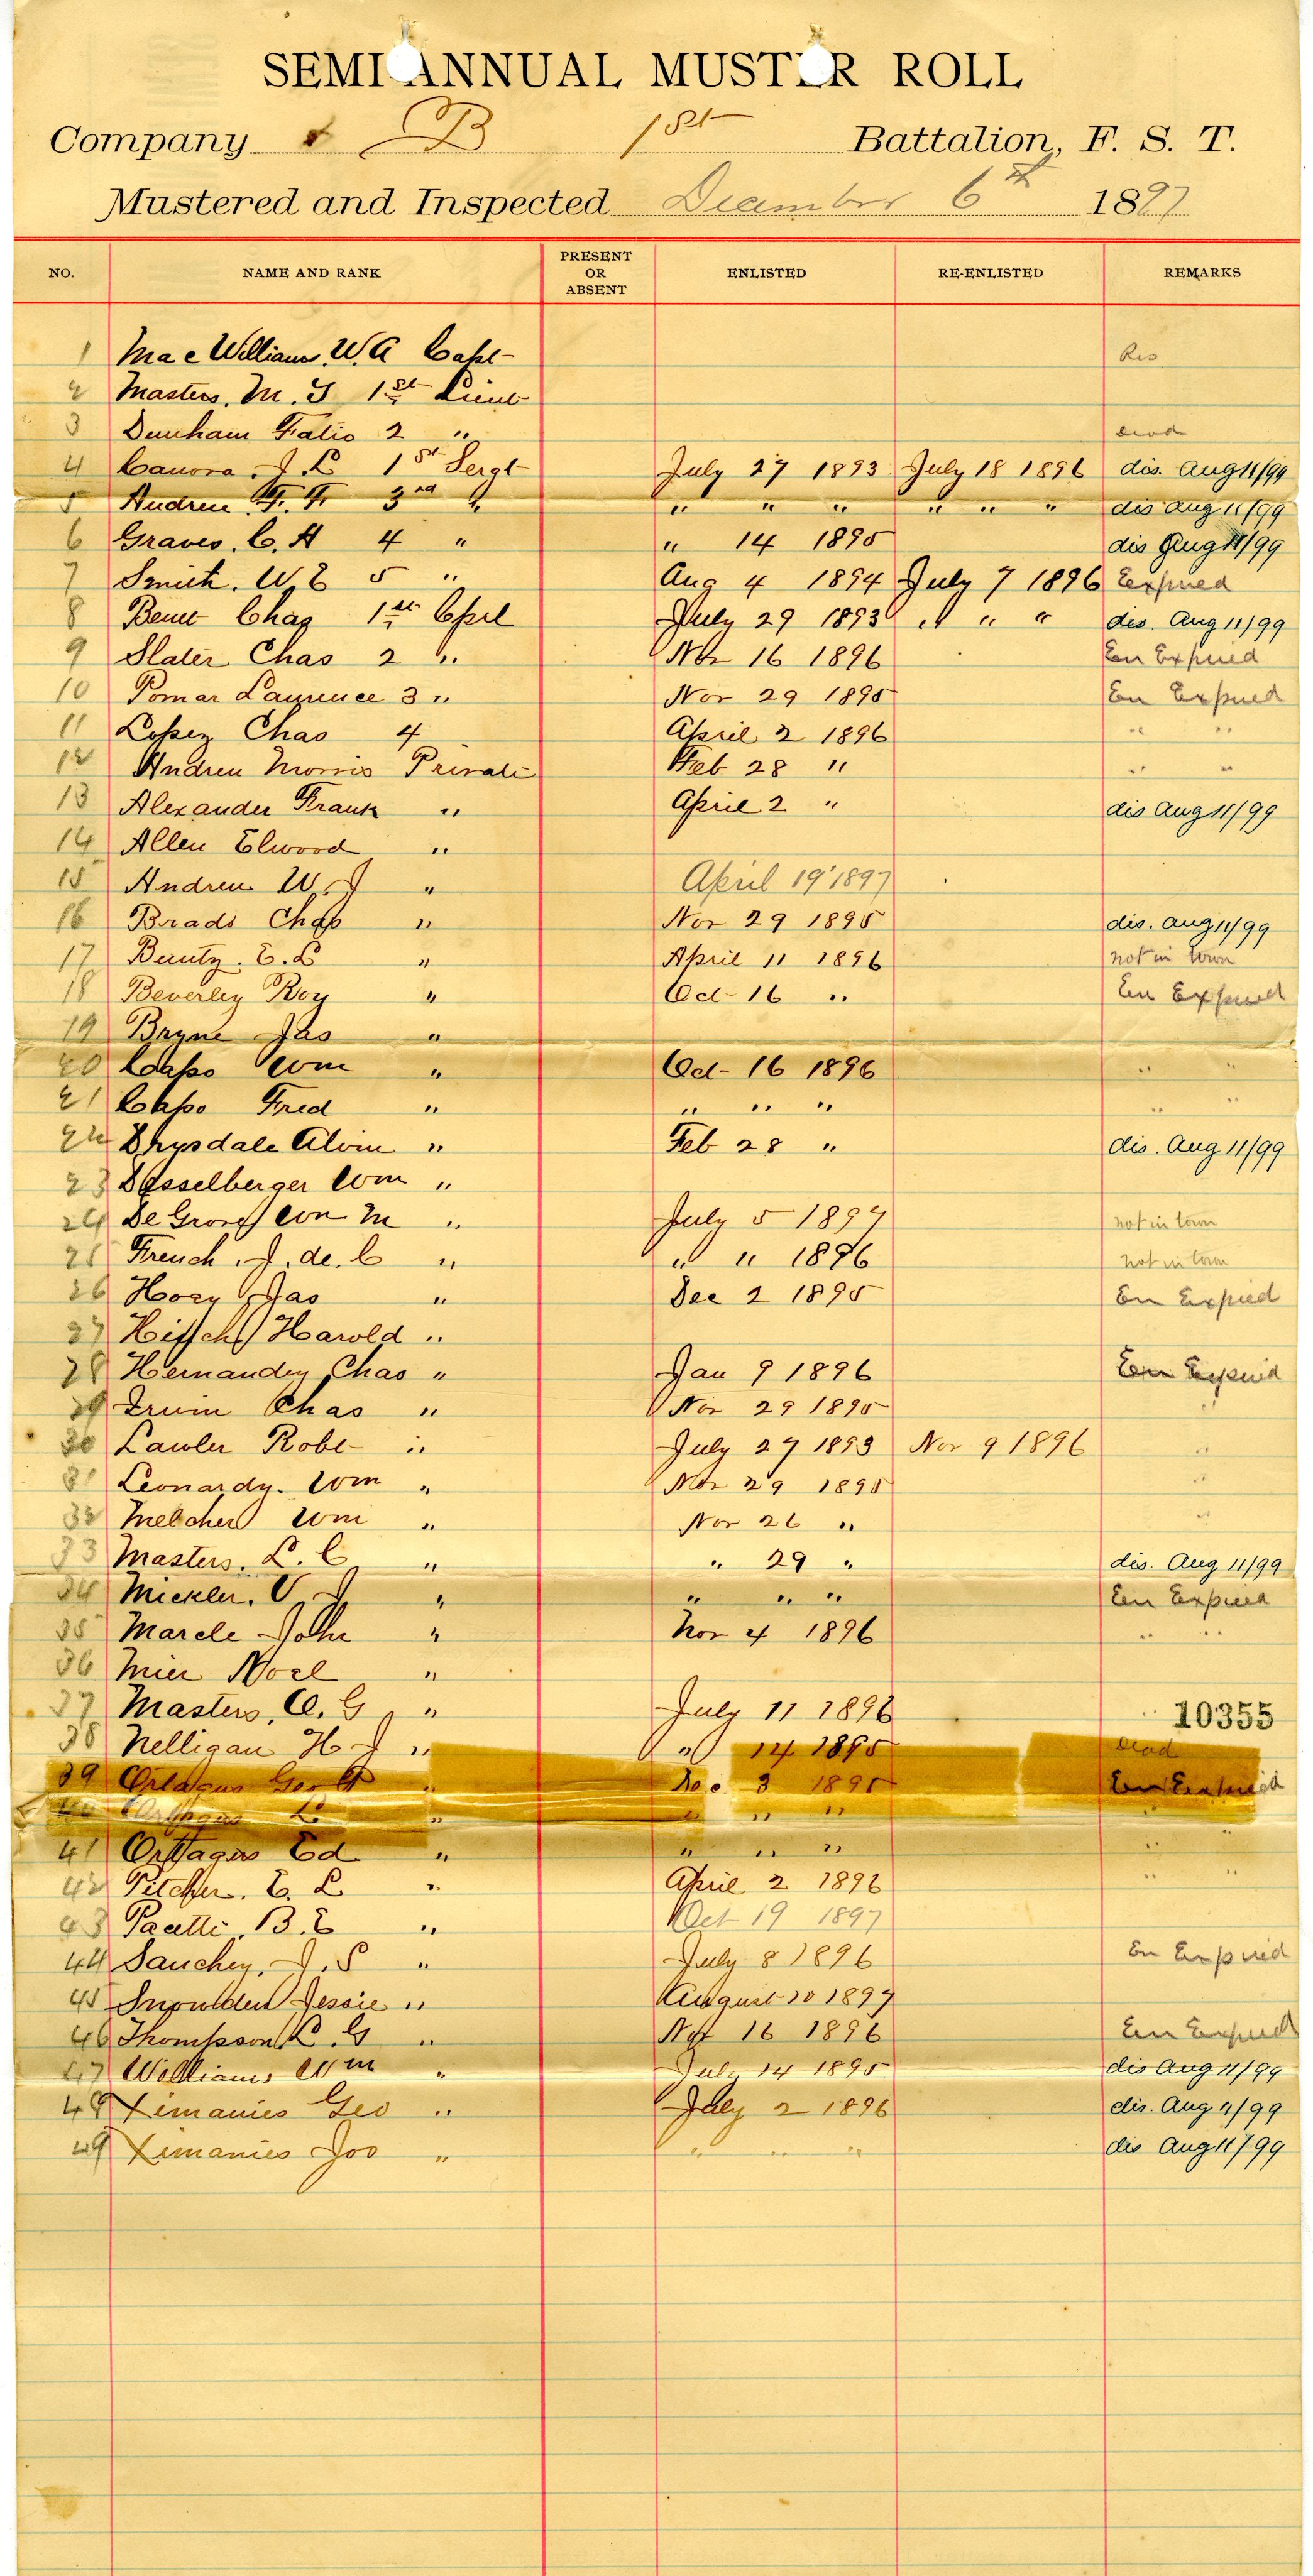 SEMI ANNUAL MUSTER ROLL
Company B 1st Battalion, F. S. T.
Mustered and Inspected December 6th 1897
NO. NAME AND RANK PRESENT OR ABSENT ENLISTED RE-ENLISTED REMARKS
1 MacWilliams, W. A Capt- Res
2 Masters, M. J 1st Lieut
3 Dunham Fatio 2 " Dead
4 Canova, J. L 1st Sergt July 27 1893 July 18 1896 dis. Aug 11/99
5 Andreu F. F. 3rd " " " " " " " dis Aug 11/99
6 Graves, C. H 4 " " 14 1895 dis Aug 11/99
7 Smith, W. E 5 " Aug 4 1894 July 7 1896 Expired
8 Benet Chas 1st Corpl July 29 1893 " " " dis. Aug 11/99
9 Slater Chas 2 " Nov 16 1896 En Expired
10 Pomar Laurence 3 " Nov 29 1895 En Expired
11 Lopez Chas 4 April 2 1896 " "
12 Andreu Morris Private Feb 28 " " "
13 Alexander Frank " April 2 " dis Aug 11/99
14 Allen Elwood "
15 Andreu W. J " April 19 1897
16 Brads Chas " Nov 29 1895 dis. Aug 11/99
17 Buntz. E. L " April 11 1896 not in town
18 Beverley Roy " Oct-16 " En Expired
19 Bryne Jas "
20 Capo Wm " Oct-16 1896 " "
21 Capo Fred " " " " " "
22 Drysdale Alvin " Feb 28 " dis. Aug 11/99
23 Desselberger Wm "
24 De Grove Wm M " July 5 1897 not in town
25 French, J. de. C " " " 1896 not in town
26 Hoey Jas " Dec 2 1895 En Expired
27 Harold "
28 Hernandez Chas " Jan 9 1896 En Expired
29 Chas " Nov 29 1895 "
30 Lawler Robt- " July 27 1893 Nov 9 1896 "
31 Leonardy. Wm " Nov 29 1895 "
32 Melcher Wm " Nov 26 " "
33 Masters. L. C " " 29 " dis. Aug 11/99
34 Mickler. V. J " " " " En Expired
35 John " Nov 4 1896 " "
36 Mier Noel "
37 Masters, O. G " July 11 1896 10355
38 Nelligan H J " " 14 1895 Dead
39 Geo " Dec 3 1895 En Expired
40 L " " " "
41 Ortagus Ed " " " " " "
42 Pitcher. E. L " April 2 1896 " "
43 Pacetti, B. E " Oct 19 1897
44 Sanchez, J. S " July 8 1896 En Expired
45 Snowden Jessie " August 10 1897
46 Thompson L. G " Nov 16 1896 En Expired
47 Williams Wm " July 14 1895 dis Aug 11/99
48 Ximanies Geo " July 2 1896 dis. Aug 11/99
49 Ximanies Joo " " " " dis Aug 11/99